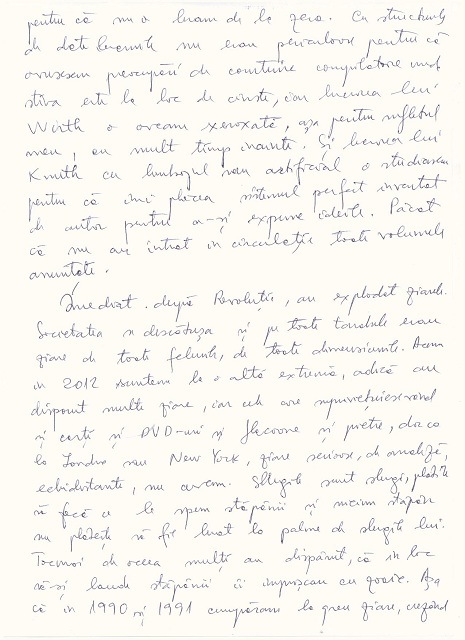 pentru că nu o luam de la zero. Cu structurile
de date lucrurile nu erau periculoase pentru că
avusesem preocupări de construire compilatoare unde
stiva este la loc de cinste, iar lucrarea lui
Wirth o aveam xeroxată, așa pentru sufletul
meu, cu mult timp înainte. Și lucrarea lui
Knuth cu limbajul său artificial o studiasem
pentru că îmi plăcea sistemul perfect inventat
de autor pentru a-și expune ideile. Păcat
că nu au intrat în circulație toate volumele
anunțate.
Imediat după Revoluție, au explodat ziarele.
Societatea se descătușa și pe toate tarabele erau
ziare de toate felurile, de toate dimensiunile. Acum
in 2012 suntem la o altă extremă, adică au
dispărut multe ziare, iar cele care supraviețuiesc vând
și cărți și DVD-uri și flacoane și pietre, dar ca
la Londra sau New York, ziare serioase, de analiză,
echidistante, nu avem. Slugile sunt slugi, plătite
să facă ce le spun stăpânii și niciun stăpân
nu plătește să fie luat la palme de slugile lui.
Tocmai de aceea multe au dispărut, că în loc
să-și laude stăpânii îi împroșcau cu zoaie. Așa
că in 1990 și 1991 cumpăram la greu ziare, crezând